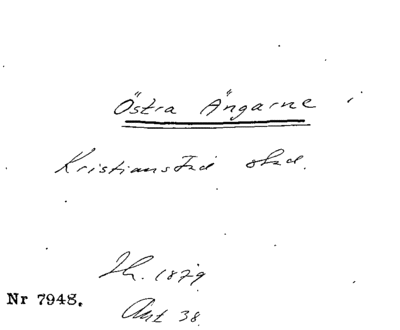 Östra Ängarne i
Kristianstad stad.
Th. 1879
Nr 7948.
Akt 38.